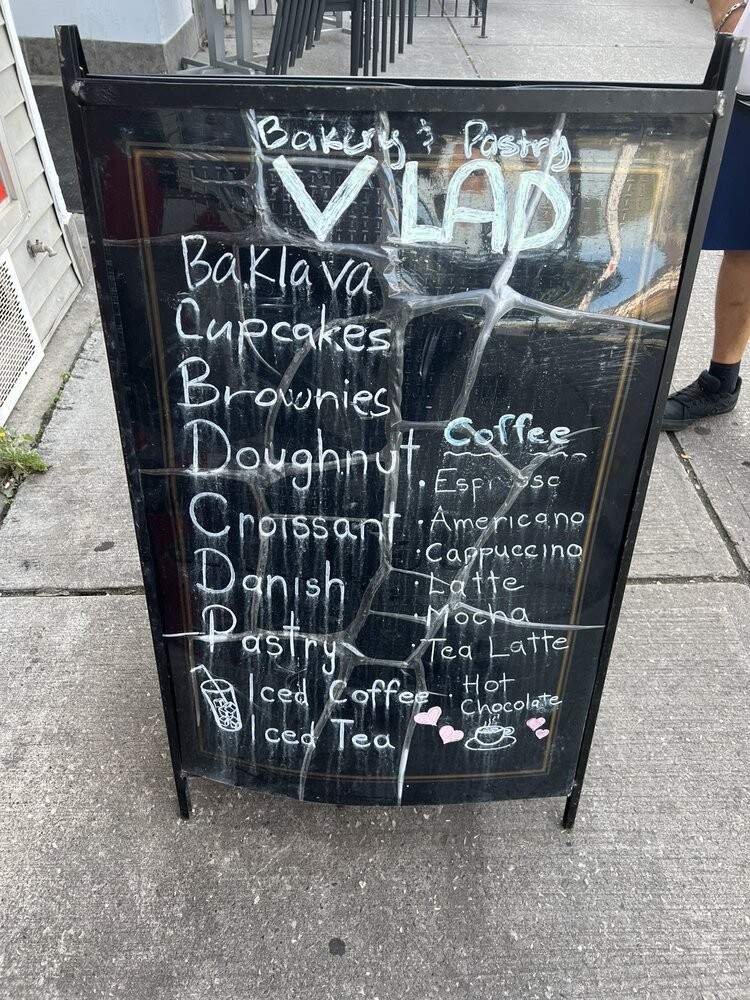 Bakery & Pastry
VLAD
Baklava
Cupcakes
Brownies
Doughnut
Croissant
Danish
Pastry
Iced Coffee
Iced Tea
Coffee
· Espresso
· Americano
· Cappuccino
· Latte
· Mocha
· Tea Latte
· Hot
Chocolate